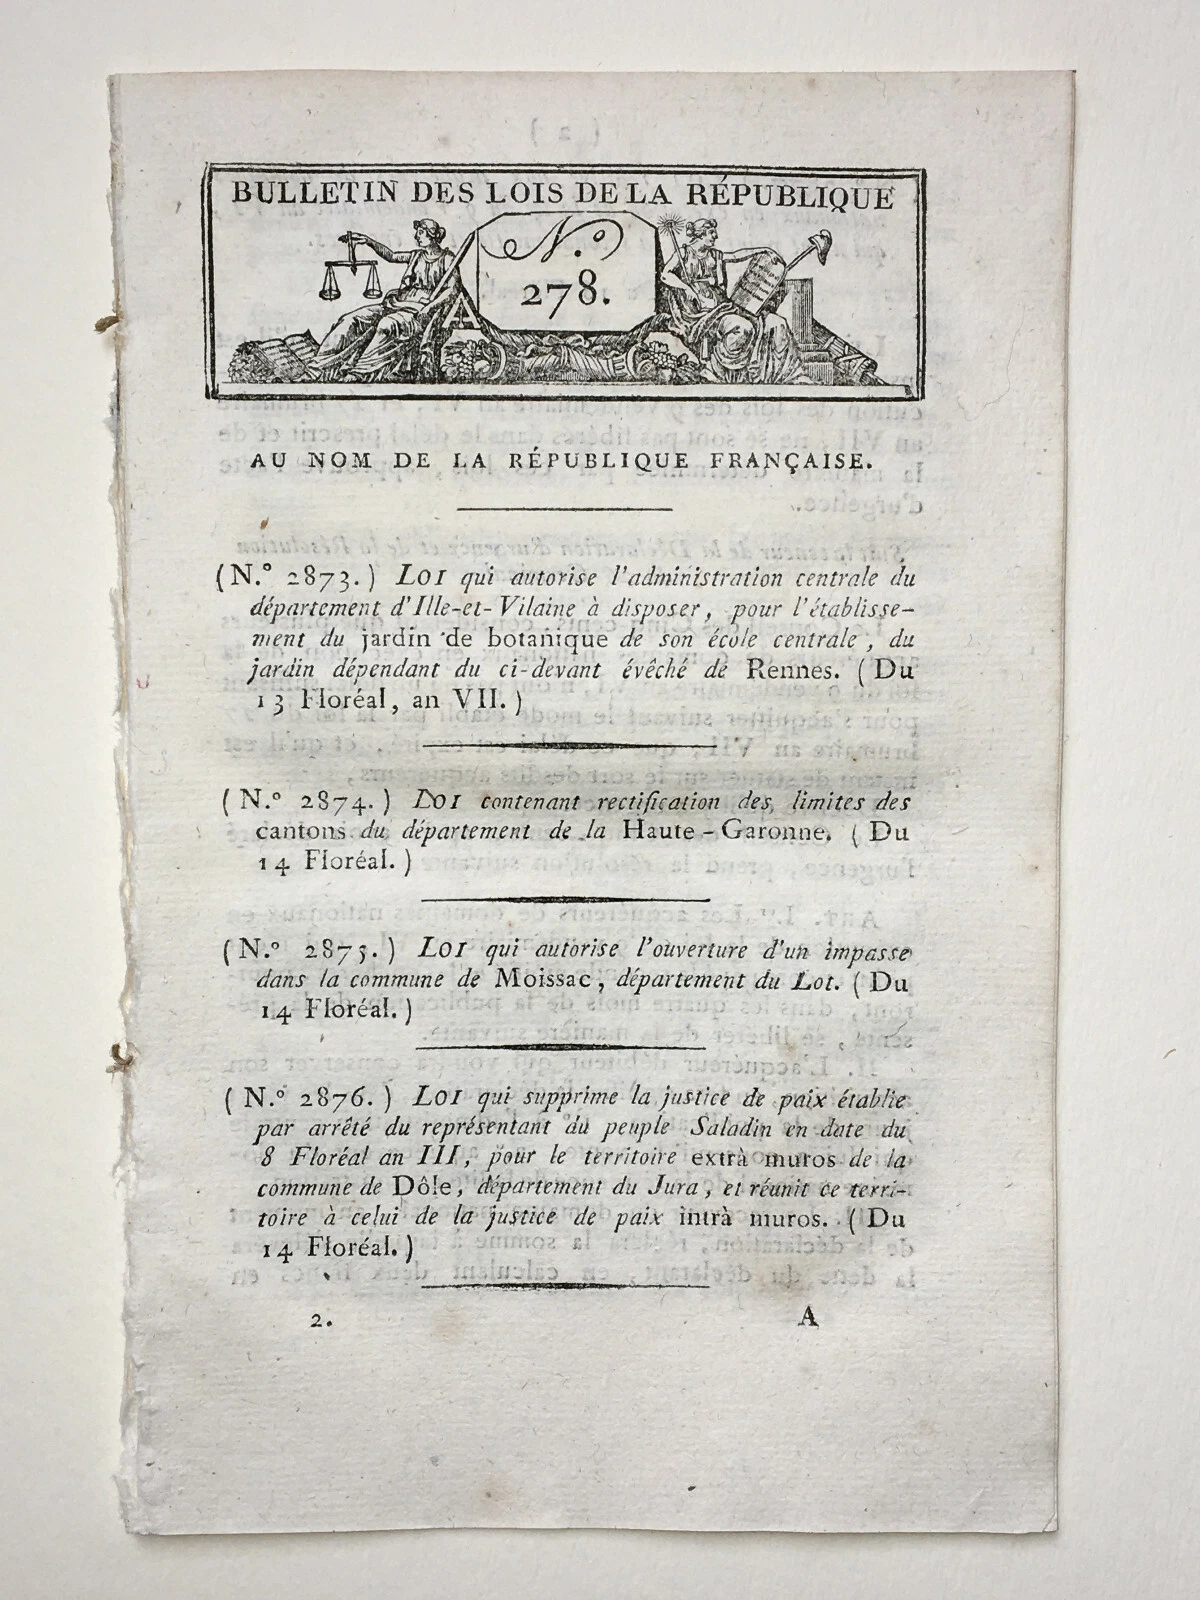 BULLETIN DES LOIS DE LA RÉPUBLIQUE
N.°
278.
A
AU NOM DE LA RÉPUBLIQUE FRANÇAISE.
(N.° 2873.) LOI qui autorise l'administration centrale du
département d'Ille-et-Vilaine à disposer, pour l'établisse-
ment du jardin de botanique de son école centrale, du
jardin dépendant du ci-devant évêché de Rennes. (Du
13 Floréal, an VII.)
(N.° 2874.) LOI contenant rectification des limites des
cantons du département de la Haute-Garonne. (Du
14 Floréal.)
(N.° 2875.) LOI qui autorise l'ouverture d'un impasse
dans la commune de Moissac, département du Lot. (Du
14 Floréal.)
(N.° 2876.) LOI qui supprime la justice de paix établie
par arrêté du représentant du peuple Saladin en date du
8 Floréal an III, pour le territoire extrà muros de la
commune de Dôle, département du Jura, et réunit ce terri-
toire à celui de la justice de paix intrà muros. (Du
14 Floréal.)
2. A